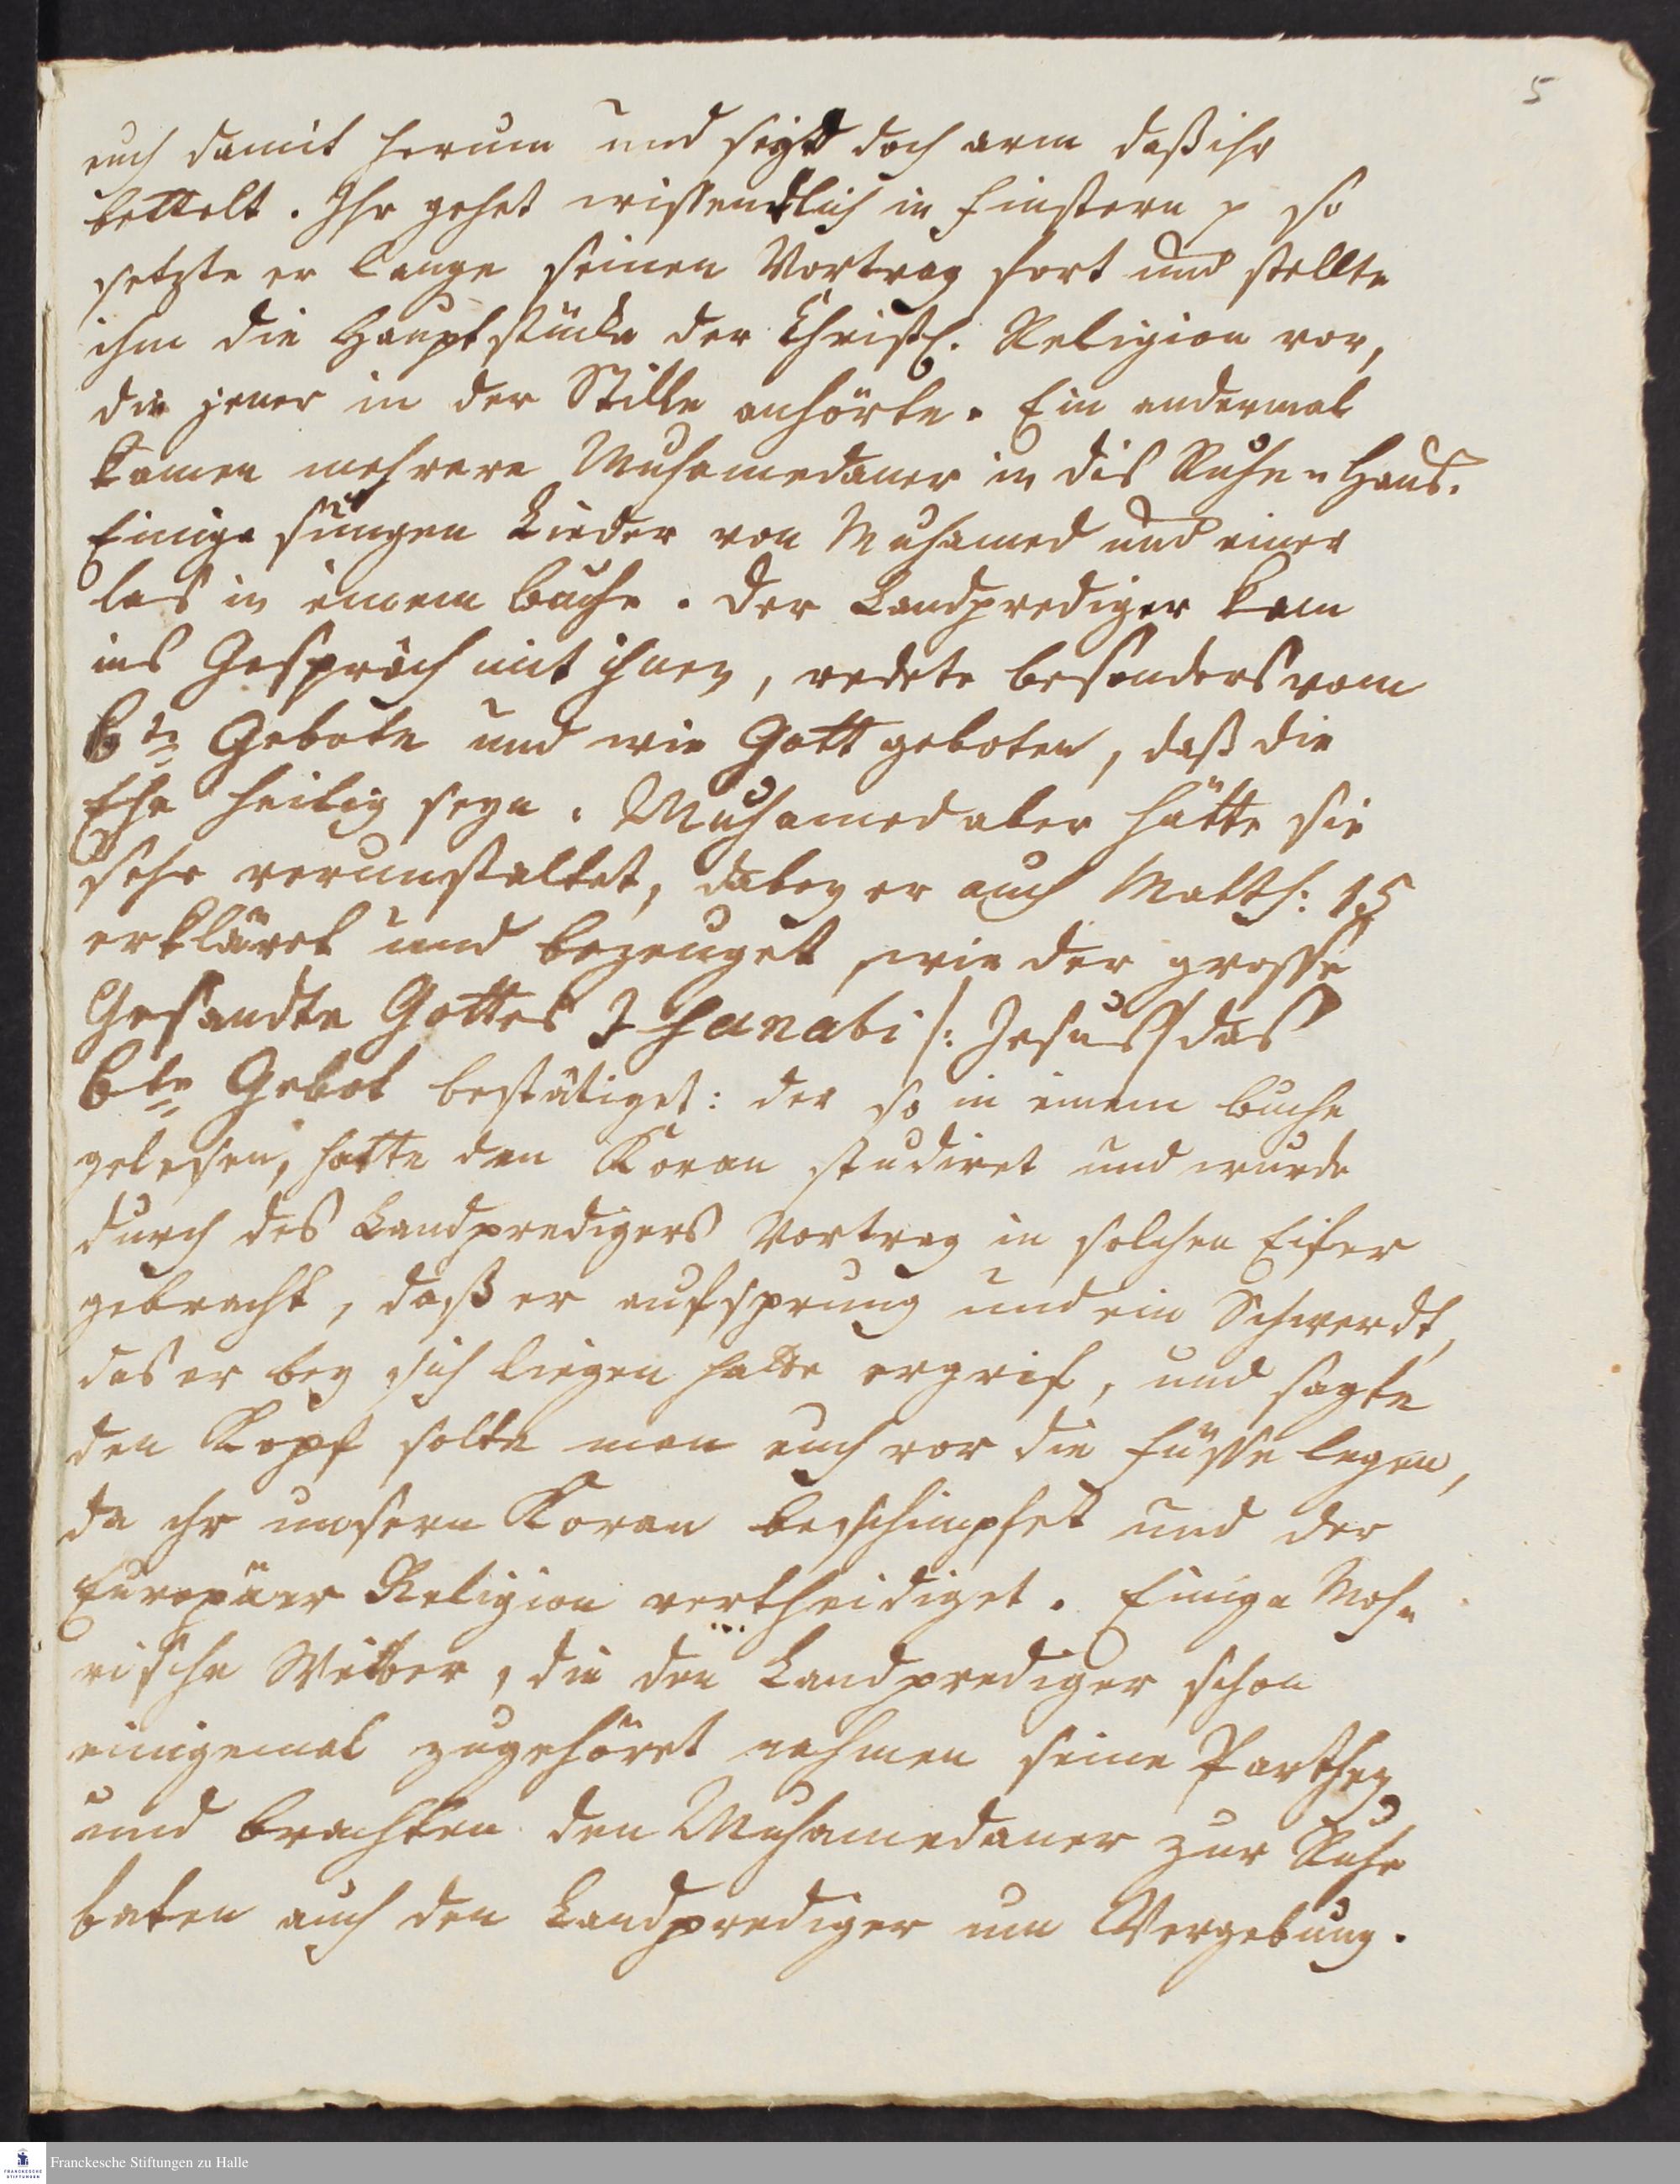 5
euch damit herum und seyd doch arm daß ihr
bettelt. Ihr gehet wissendlich in Finstern p so
setzte er lange seinen Vortrag fort und stellte
ihm die Hauptstücke der Christl. Religion vor,
die jener in der Stille anhörte. Ein andermal
kamen mehrere Muhamedaner in dis Ruhe-Haus.
Einige sungen Lieder von Muhamed und einer
las in einem Buche. Der Landprediger kam
ins Gespräch mit ihnen, redete besonders vom
6ten Gebote und wie Gott geboten, daß die
Ehe heilig seyn. Muhamed aber hätte sie
sehr verunstaltet, dabey er auch Matth: 15
erkläret und bezeuget, wie der grosse
Gesandte Gottes Ihanabi /: Jesus / das
6te Gebot bestätiget: der so in einem Buche
gelesen, hatte den Koran studiret und wurde
durch des Landpredigers Vortrag in solchen Eifer
gebracht, daß er aufsprung und ein Schwerdt,
das er bey sich liegen hatte ergrif, und sagte
den Kopf solte man euch vor die Füsse legen,
da ihr unsern Koran beschimpfet und der
Europäer Religion vertheidiget. Einige Moh-
rische Weiber, die den Landprediger schon
einigemal zugehöret nahmen seine Parthey
und brachten den Muhamedaner zur Ruhe
baten auch den Landprediger um Vergebung.
FRANCKESCHE STIFTUNGEN
Franckesche Stiftungen zu Halle